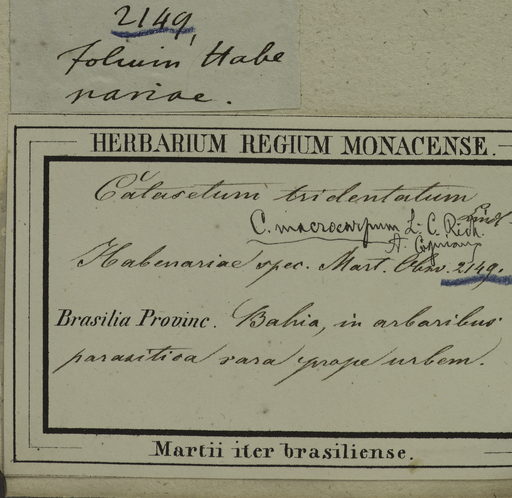 2149,
Folium Habe
nariae.
HERBARIUM REGIUM MONACENSE.
Catasetum tridentatum
C. macrocarpum L. C. Rich.
A. Cogniaux
Habenariae spec. Mart. Obsv. 2149.
Brasilia Provinc. Bahia, in arboribus
parasitica rara prope urbem.
Martii iter brasiliense.